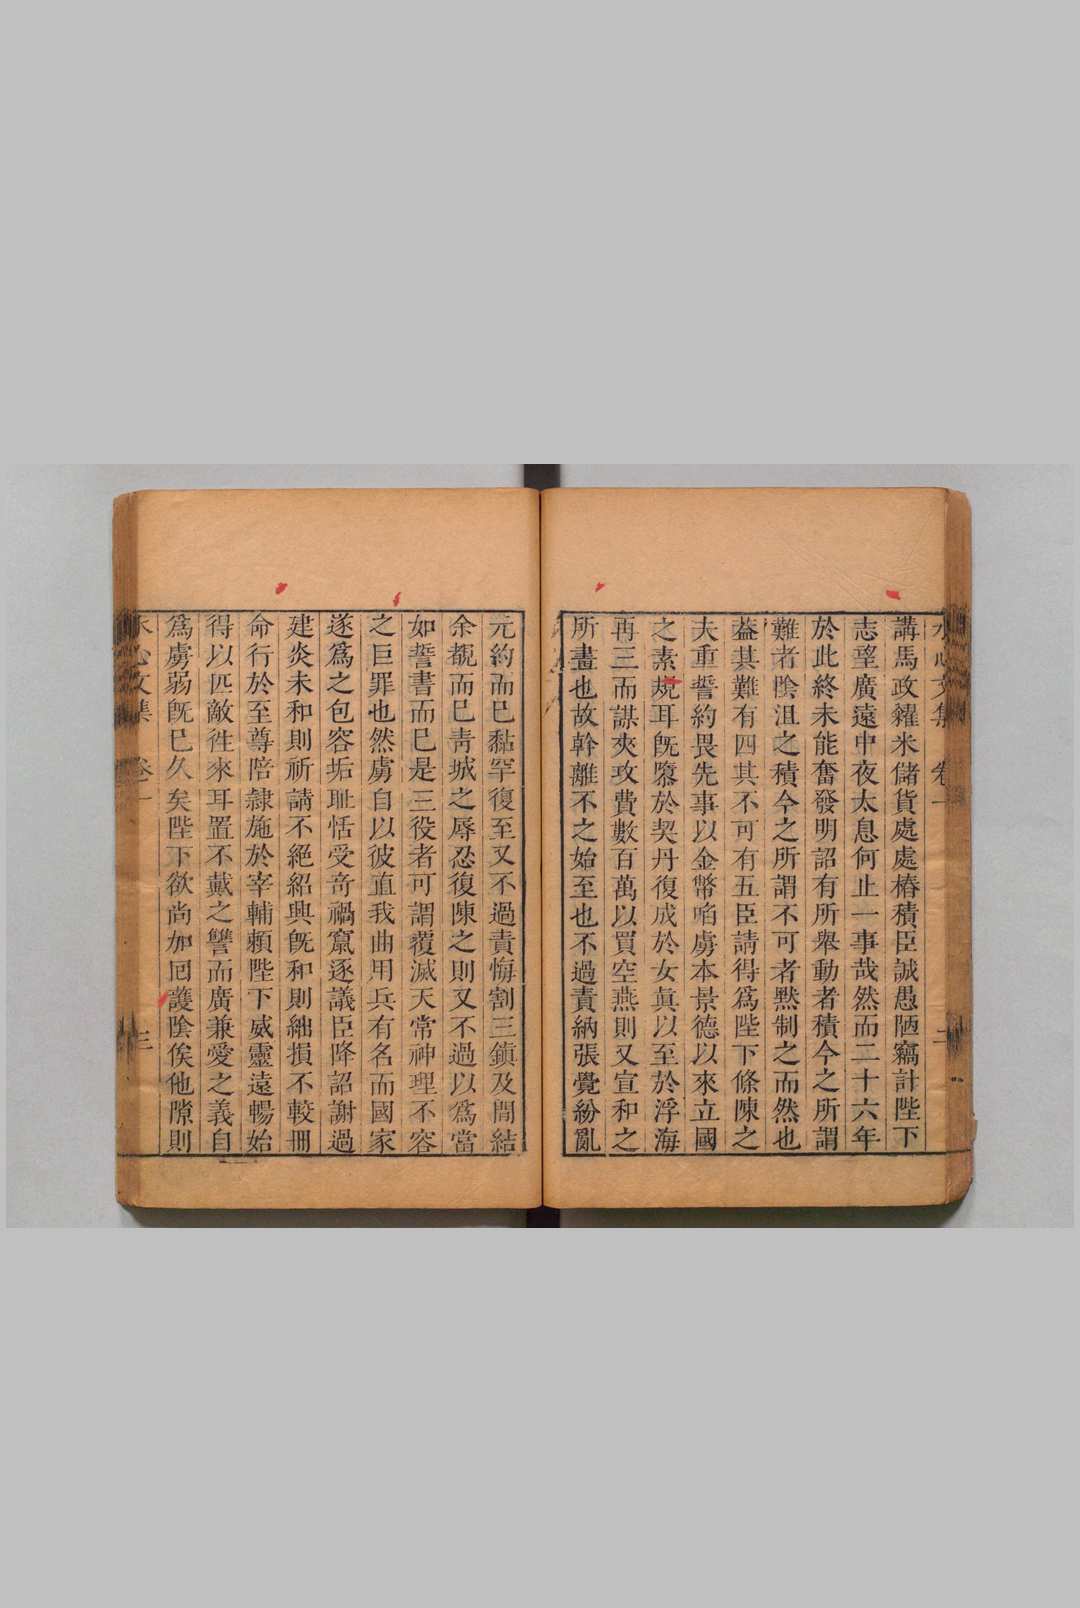 水心文集 卷一 二
講馬政糴米儲貨處處樁積臣誠愚陋竊計陛下
志望廣遠中夜太息何止一事哉然而二十六年
於此終未能奮發明詔有所舉動者積今之所謂
難者陰沮之積今之所謂不可者默制之而然也
葢其難有四其不可有五臣請得爲陛下條陳之
夫重誓約畏先事以金幣啗虜本景德以來立國
之素規耳旣隳於契丹復成於女眞以至於浮海
再三而謀夾攻費數百萬以買空燕則又宣和之
所畫也故幹離不之始至也不過責納張覺紛亂
元約而巳黏罕復至又不過責悔割三鎮及間結
余覩而巳靑城之辱忍復陳之則又不過以爲當
如誓書而巳是三役者可謂覆滅天常神理不容
之巨罪也然虜自以彼直我曲用兵有名而國家
遂爲之包容垢耻恬受奇禍竄逐議臣降詔謝過
建炎未和則祈請不絕紹興旣和則絀損不較冊
命行於至尊陪隸施於宰輔賴陛下威靈遠暢始
得以匹敵徃來耳置不戴之讐而廣兼愛之義自
爲虜弱旣巳久矣陛下欲尚加回護陰俟他隙則
水心文集 卷一 三